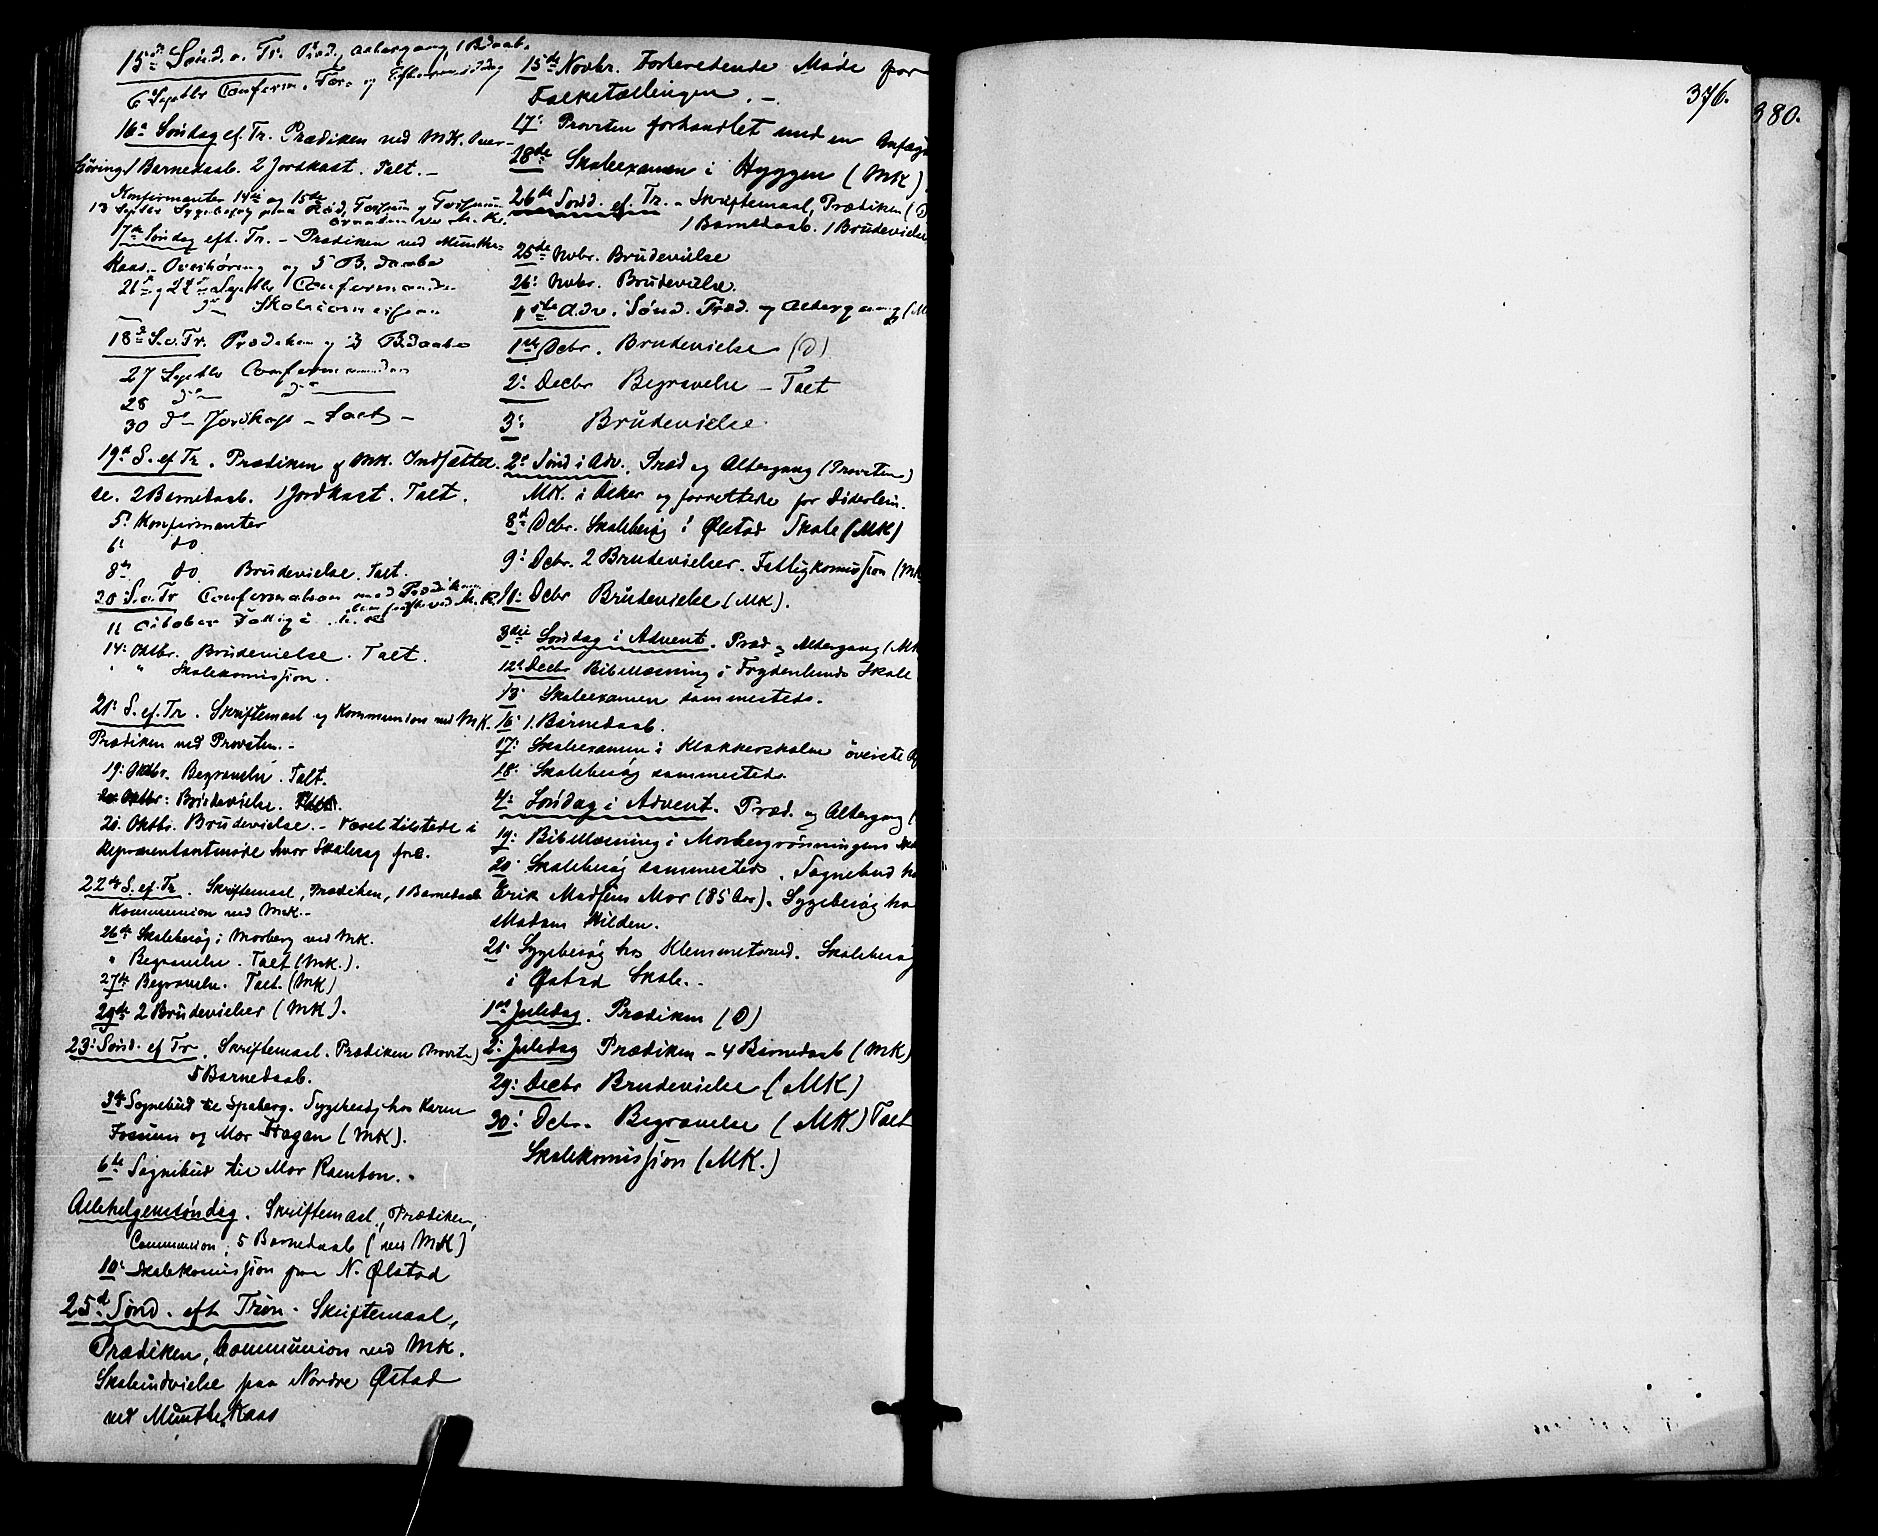 15de Sønd. e. Tr. Præd., Altergang, 1 Bdaab.
6 Septbr Confirm. For- og Eftermiddag
16de Søndag ef. Tr. Prædiken ved MK. Over-
høring 1 Barnedaab. 2 Jordkast. Talt. –
Konfirmanter 14de og 15de
13 Septbr Sygebesøg paa Rød, Fossum og
17de Søndag eft. Tr. – Prædiken ved Munthe-
Kaas – Overhøring og 5 B. daabe
21de og 22de Septbr Confirmander
do Skolecommission
18de S. e. Tr. Prædiken og 3 B.daabe
27 Septbr Confirmander
28 do do
30 do Jordkast – Talt –
19de S. ef Tr. Prædiken af MK. Indsættel-
se. 2 Barnedaab. 1 Jordkast. Talt.
5: Konfirmanter
6: do
8de do. Brudevielse. Talt.
20 S. e. Tr Confirmation med Prædiken
11 October Fattig
14: Oktbr. Brudevielse. Talt.
" " Skolekomission.
21: S. ef. Tr. Skriftemaal og Kommunion ved MK.
Prædiken ved Provsten. –
19: Oktbr. Begravelse. Talt.
20 Oktbr: Brudevielse. Talt.
21. Oktbr. Brudevielse. – Været tilstede i
Repræsentantmøde hvor Skolesag fore.
22de S. ef. Tr. Skriftemaal, Prædiken, 1 Barnedaab
Kommunion ved MK. –
26de Skolebesøg i Morberg ved MK.
" Begravelse. Talt (MK.).
27de Begravelse. Talt. (MK)
29de 2 Brudevielser (MK).
23: Sønd. ef Tr. Skriftemaal. Prædiken (Provsten)
5 Barnedaab.
3de Sognebud til Spaberg. Sygebesøg hos Karen
Fossum og Mor Hagan (MK).
6te Sognebud til Mor Ramton.
Allehelgensøndag. Skriftemaal, Prædiken,
Communion, 5 Barnedaab (ved MK)
10: Skolekomission paa N. Ølstad
25de Sønd. eft Trin. Skriftemaal,
Prædiken, Communion ved MK.
Skoleindvielse paa Nordre Østad
ved Munthe Kaas
15de Novbr. Forberedende Møde for
Folketællingen. –
17: Provsten forhandlet med en
28de Skoleexamen i Hyggen (MK)
26de Sønd. ef. Tr. – Skriftemaal, Prædiken (D
1 Barnedaab. 1 Brudevielse
25de Novbr. Brudevielse
26: Novbr. Brudevielse.
1ste Adv. Sønd. Præd. og Altergang (M
1ste Dcbr. Brudevielse (D)
2: Decbr Begravelse – Talt
3: Brudevielse
2: Sønd i Adv. Præd og Altergang (Provsten)
MK. i Asker og forrettede for Diderlein.
8de Dcbr. Skolebesøg i Ølstad Skole (MK)
9: Dcbr. 2 Brudevielser. Fattigkomission (MK
10: Dcbr Brudevielse (MK).
3die Søndag i Advent. Præd og Altergang (MK
12: Decbr Bibellæsning i Frydenlunds Skole
13: Skoleexamen sammesteds.
16: 1. Barnedaab.
17: Skoleexamen i Klokkerskolen øverste
18. Skolebesøg sammesteds
4: Søndag i Advent. Præd. og Altergang (
19: Bibellæsning i Morbergrønningens
20: Skolebesøg sammesteds. Sognebud ho
Erik Madsens Mor (85 Aar). Sygebesøg ho
Madam Wilden.
21: Sygebesøg hos Klemmetsrud. Skolebesøg
i Østad Skole. –
1ste Juledag. Prædiken (D)
2: Juledag Prædiken – 4 Barnedaab (MK)
29: Decbr Brudevielse (MK)
30: Dcbr. Begravelse (MK) Talt
Skolekomission (MK.)
376.
380.